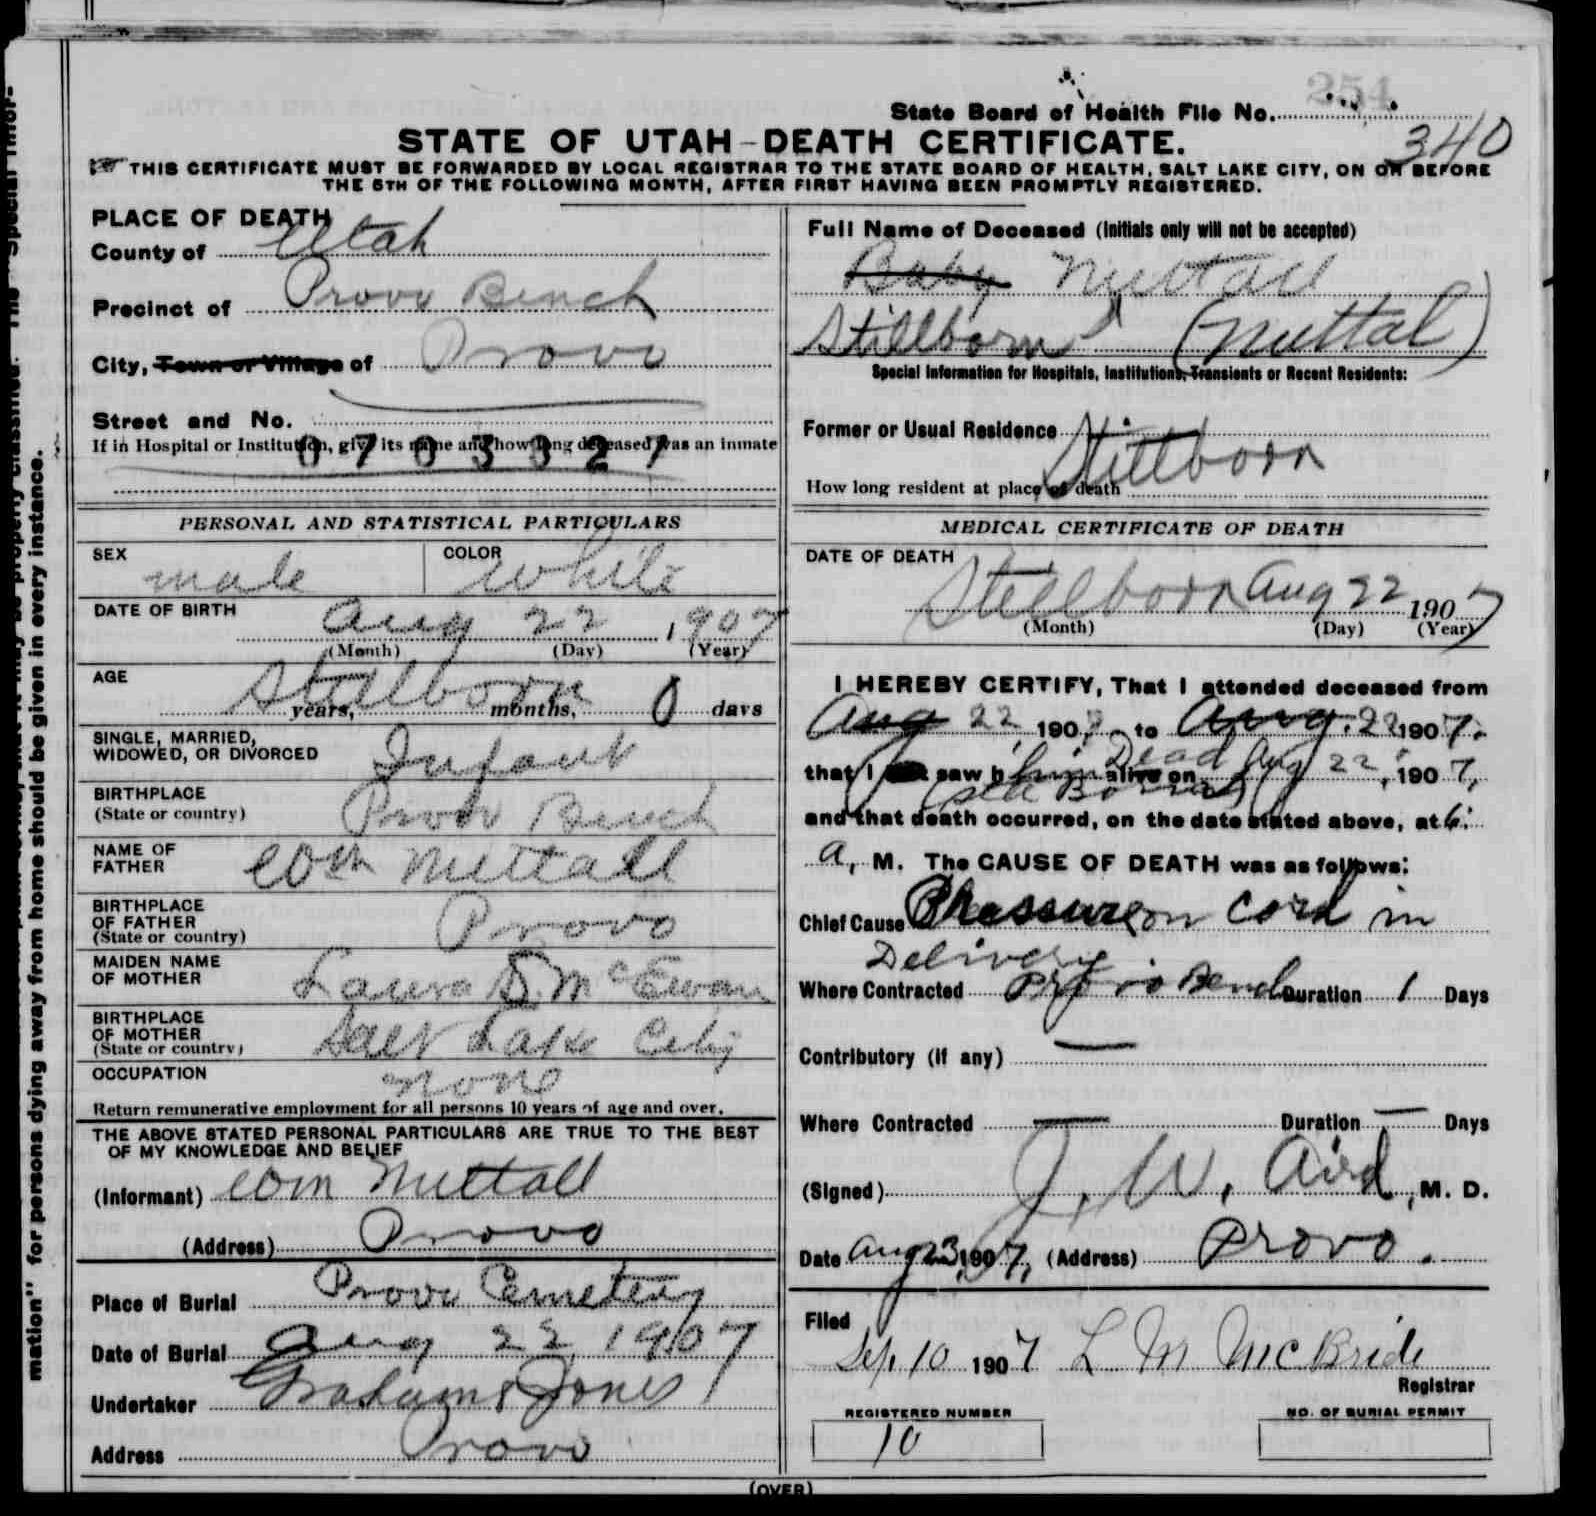 254
State Board of Health File No.
340
STATE OF UTAH-DEATH CERTIFICATE.
THIS CERTIFICATE MUST BE FORWARDED BY LOCAL REGISTRAR TO THE STATE BOARD OF HEALTH, SALT LAKE CITY, ON OR BEFORE
THE 5TH OF THE FOLLOWING MONTH, AFTER FIRST HAVING BEEN PROMPTLY REGISTERED.
PLACE OF DEATH
County of Utah
Precinct of Provo Bench
City, Town or Village of Provo
Street and No.
If in Hospital or Institution, give its name and how long deceased was an inmate
0703327
PERSONAL AND STATISTICAL PARTICULARS
SEX male COLOR White
DATE OF BIRTH Aug 22, 1907
(Month) (Day) (Year)
AGE Stillborn
years, months, 0 days
SINGLE, MARRIED,
WIDOWED, OR DIVORCED Infant
BIRTHPLACE
(State or country) Provo Bench
NAME OF
FATHER Wm Nuttall
BIRTHPLACE
OF FATHER
(State or country) Provo
MAIDEN NAME
OF MOTHER Laura D. McEwan
BIRTHPLACE
OF MOTHER
(State or country) Salt Lake City
OCCUPATION none
Return remunerative employment for all persons 10 years of age and over.
THE ABOVE STATED PERSONAL PARTICULARS ARE TRUE TO THE BEST
OF MY KNOWLEDGE AND BELIEF
(Informant) Wm Nuttall
(Address) Provo
Place of Burial Provo Cemetery
Date of Burial Aug 22 1907
Undertaker Graham & Jones
Address Provo
Full Name of Deceased (Initials only will not be accepted)
Baby Nuttall
Stillborn (Nuttal)
Special Information for Hospitals, Institutions, Transients or Recent Residents:
Former or Usual Residence
Stillborn
How long resident at place of death
MEDICAL CERTIFICATE OF DEATH
DATE OF DEATH
Stillborn Aug 22 1907
(Month) (Day) (Year)
I HEREBY CERTIFY, That I attended deceased from
Aug 22, 1907, to Aug. 22 1907.
that I saw him alive on Dead Aug 22, 1907,
and that death occurred, on the date stated above, at 6
a, M. The CAUSE OF DEATH was as follows:
Chief Cause Pressure on Cord in
Delivery
Where Contracted Provo Bench Duration 1 Days
Contributory (if any) —
Where Contracted — Duration — Days
(Signed) J. W. Aird, M. D.
Date Aug 23, 1907, (Address) Provo.
Filed
Sep. 10 1907 L M McBride
Registrar
REGISTERED NUMBER
10
NO. OF BURIAL PERMIT
(OVER)
mation" for persons dying away from home should be given in every instance.